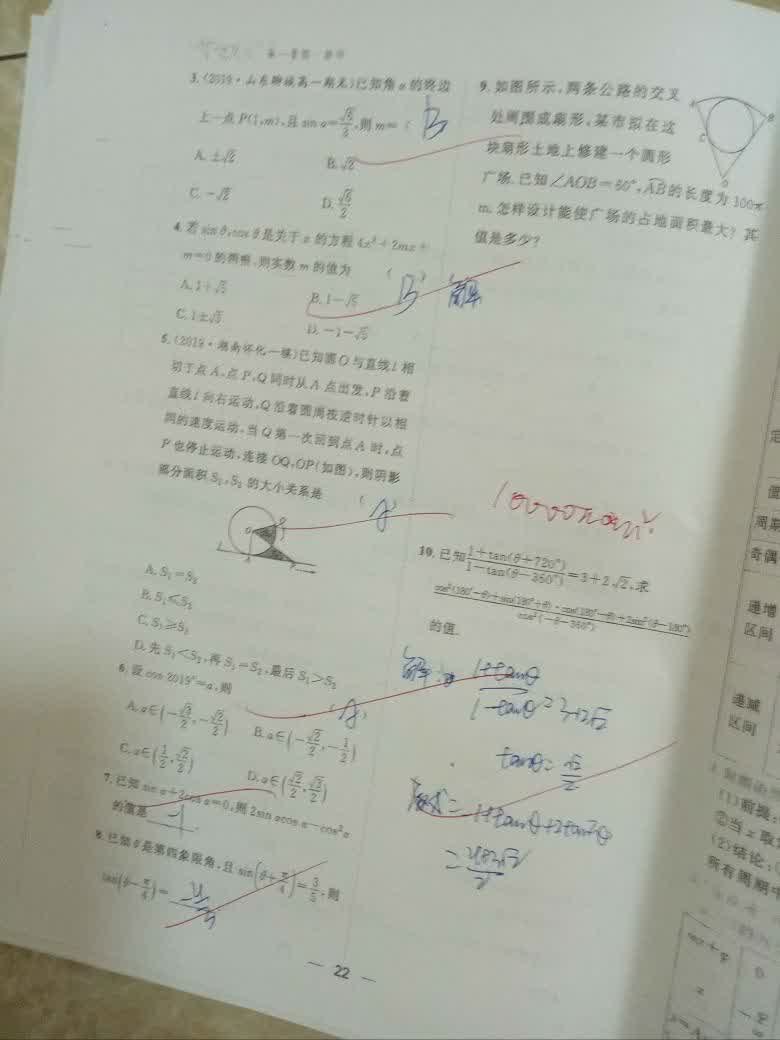 3.(2019·山东聊城高一期末)已知角α的终边
上一点P(1,m),且sin α=√6/2,则m=( B
A.±√2
B.√2
C.-√2
D.√6/2
4.若sin θ,cos θ是关于x的方程4x²+2mx+
m=0的两根,则实数m的值为 ( B )
A.1+√5
B.1-√5
C.1±√5
D.-1-√5
5.(2019·湖南怀化一模)已知圆O与直线l相
切于点A,点P,Q同时从A点出发,P沿着
直线l向右运动,Q沿着圆周按逆时针以相
同的速度运动,当Q第一次回到点A时,点
P也停止运动,连接OQ,OP(如图),则阴影
部分面积S₁,S₂的大小关系是 ( A )
O
A
A.S₁=S₂
B.S₁≤S₂
C.S₁≥S₂
D.先S₁<S₂,再S₁=S₂,最后S₁>S₂
6.设cos 2019°=a,则 (A)
A.a∈(-√3/2,-√2/2)
B.a∈(-√2/2,-1/2)
C.a∈(1/2,√2/2)
D.a∈(√2/2,√3/2)
7.已知sin α+2cos α=0,则2sin αcos α-cos²α
的值是 -1 .
8.已知θ是第四象限角,且sin(θ+π/4)=3/5,则
tan(θ-π/4)=
— 22 —
9.如图所示,两条公路的交叉
处周围成扇形,某市拟在这
块扇形土地上修建一个圆形
广场.已知∠AOB=60°,AB的长度为100π
m.怎样设计能使广场的占地面积最大?其
值是多少?
A
B
C
O
解
10.已知(1+tan(θ+720°))/(1-tan(θ-360°))=3+2√2,求
(cos²(180°-θ)+sin(180°+θ)·cos(180°-θ)+2sin²(θ-180°))/(cos²(-θ-360°))
的值.
解: (1+tanθ)/(1-tanθ)=3+2√2
tanθ=√2/2
原式=1+tanθ+2tan²θ
定
值
周期
奇偶
递增
区间
递减
区间
(1)前提:
②当x取
(2)结论:
所有周期中